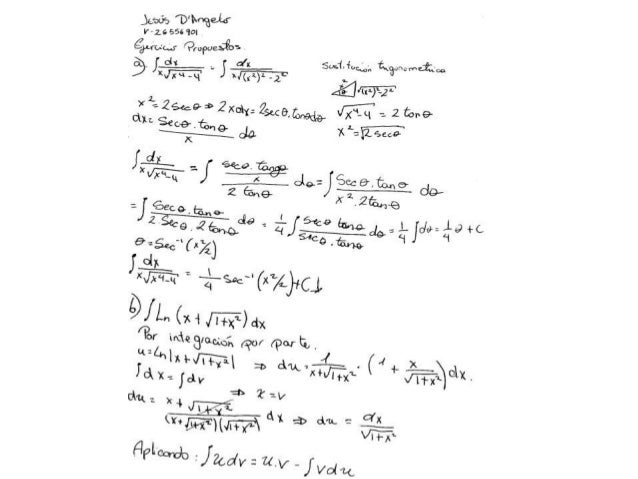 Jesús D'Angelo
V-26556901
Ejercicios Propuestos.
a) ∫ dx / x√x⁴-4 = ∫ dx / x√(x²)²-2² Sustitución trigonometrica
x² θ √(x²)²-2²
x² = 2secθ ⇒ 2xdx = 2secθ.tanθdθ √x⁴-4 = 2 tanθ
dx = Secθ.tanθ / x dθ x² = √2secθ
∫ dx / x√x⁴-4 = ∫ secθ.tanθ / x / 2 tanθ dθ = ∫ Secθ.tanθ / x².2tanθ dθ
= ∫ Secθ.tanθ / 2 Secθ.2tanθ dθ = 1/4 ∫ secθ tanθ / secθ.tanθ dθ = 1/4 ∫dθ = 1/4 θ + C
θ = Sec⁻¹(x²/2)
∫ dx / x√x⁴-4 = 1/4 sec⁻¹(x²/2)+C
b) ∫ Ln (x + √1+x²) dx
Por integración por parte.
u = Ln|x + √1+x²| ⇒ du = 1 / x+√1+x² · (1 + x / √1+x²) dx.
∫dx = ∫dv ⇒ x = v
du = x + √1+x² / (x+√1+x²)(√1+x²) dx ⇒ du = dx / √1+x²
Aplicando: ∫udv = u.v - ∫vdu